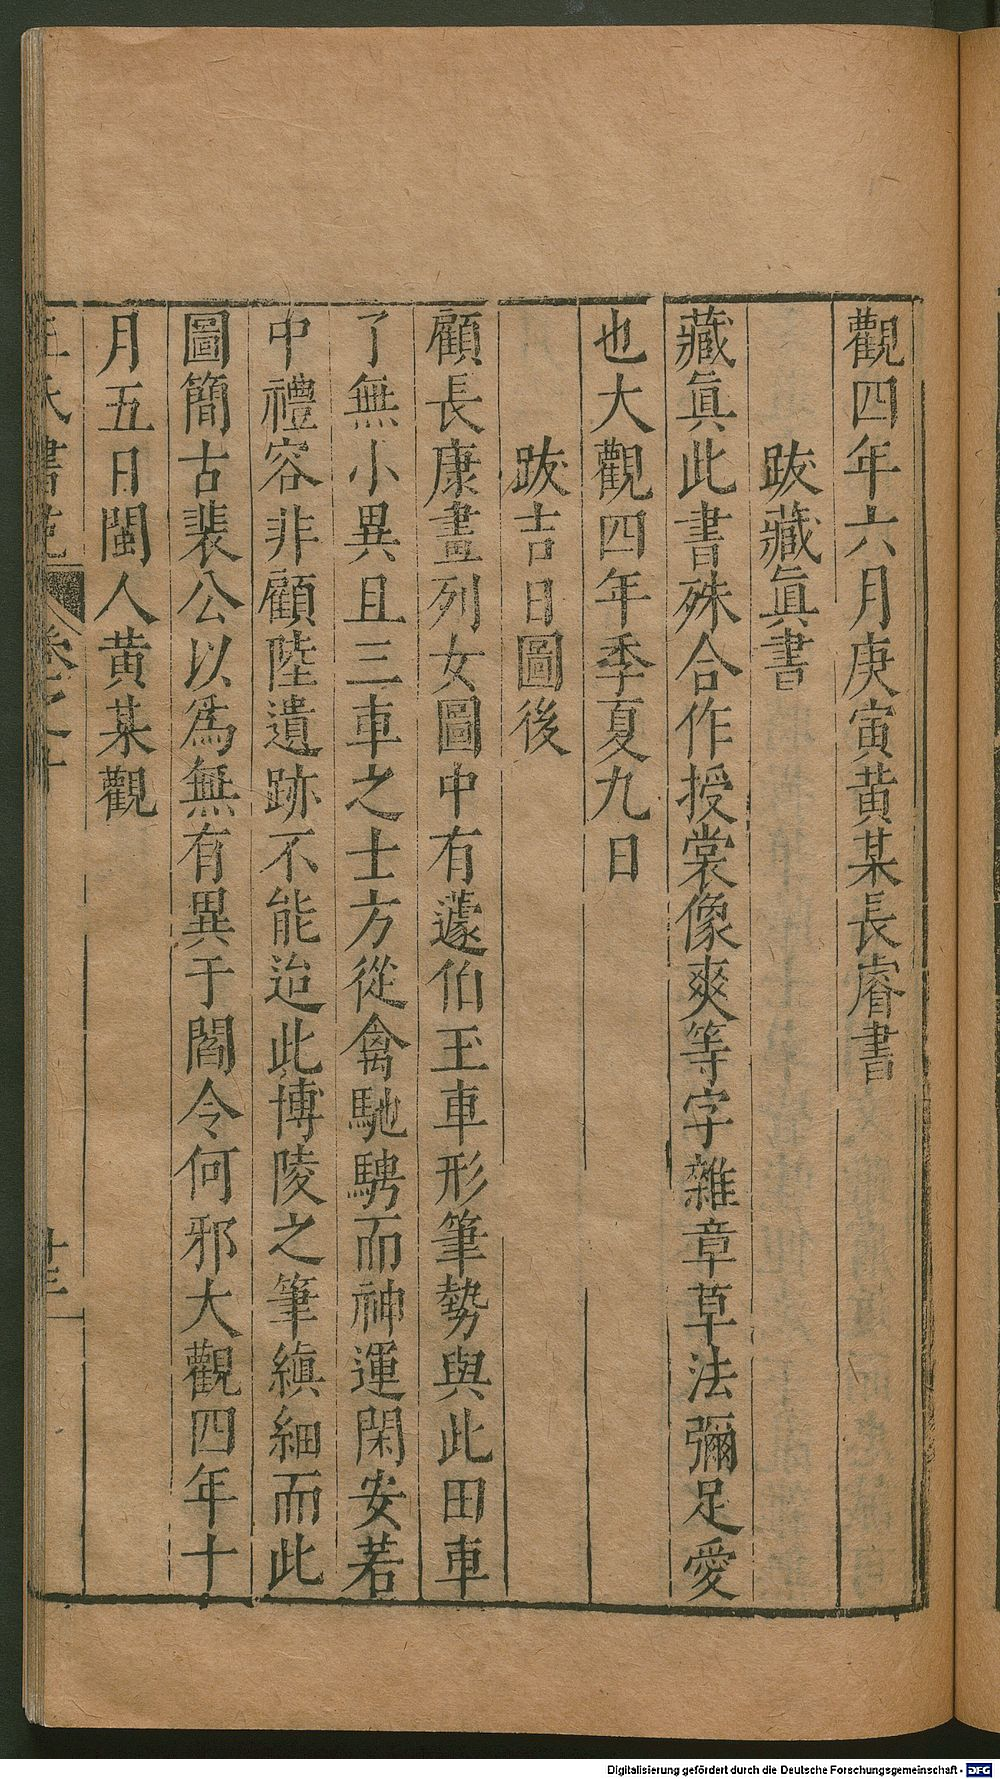 觀四年六月庚寅黃某長睿書
跋藏眞書
藏眞此書殊合作授裳像爽等字雜章草法彌足愛
也大觀四年季夏九日
跋吉日圖後
顧長康畫列女圖中有蘧伯玉車形筆勢與此田車
了無小異且三車之士方從禽馳騁而神運閑安若
中禮容非顧陸遺跡不能迨此博陵之筆縝細而此
圖簡古裴公以爲無有異于閻令何邪大觀四年十
月五日閩人黃某觀
王氏書苑 卷之十
Digitalisierung gefördert durch die Deutsche Forschungsgemeinschaft - DFG